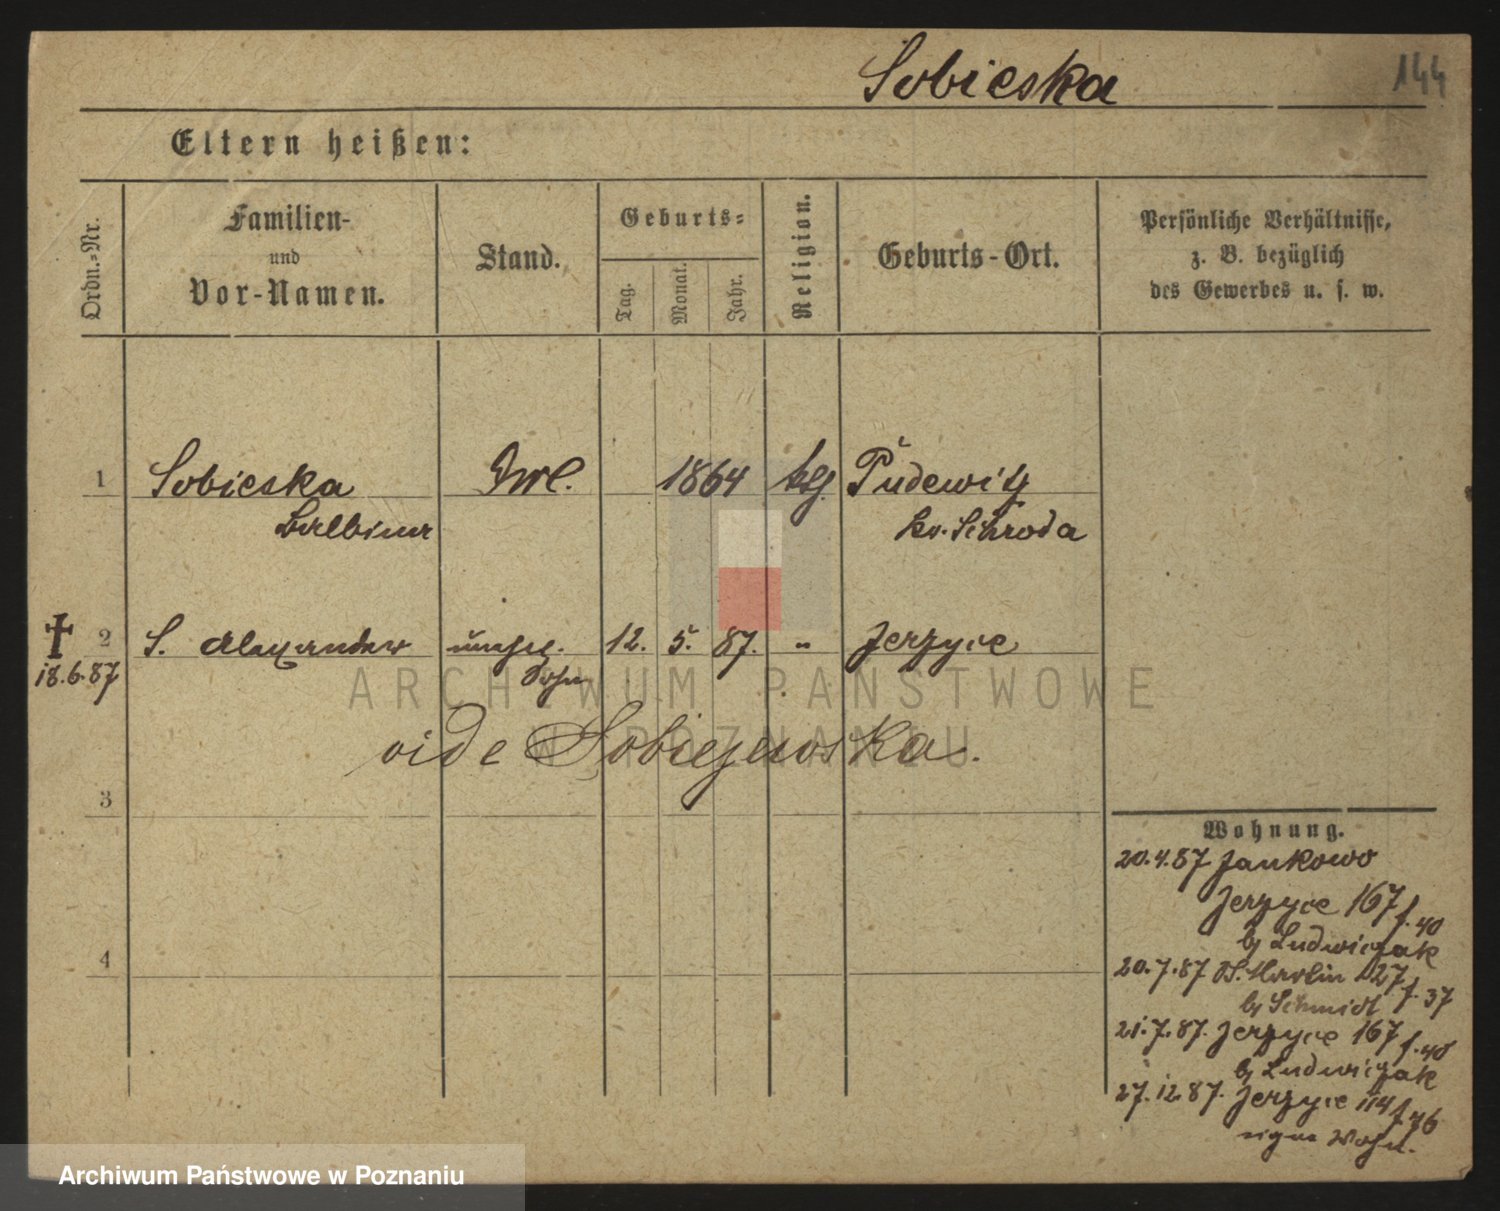 Sobieska
144
Eltern heißen:
Ordn.=Nr.
Familien-
und
Vor-Namen.
Stand.
Geburts=
Tag.
Monat.
Jahr.
Religion.
Geburts-Ort.
Persönliche Verhältnisse,
z. B. bezüglich
des Gewerbes u. s. w.
1 Sobieska 1864 Pudewitz
Balbina Kr. Schroda
2 S. Alexander unehel. 12. 5. 87. " Jerzyce
18.6.87 Sohn
vide Sobiejewska.
3
4
Wohnung.
20.4.87 Jankowo
Jerzyce 167 f. 40
b/ Ludwiczak
20.7.87 St. Martin 27 f. 37
b/ Schmidt
21.7.87. Jerzyce 167 f. 40
b/ Ludwiczak
27.12.87. Jerzyce 114 f. 76
eigne Wohn.
ARCHIWUM PAŃSTWOWE
W POZNANIU
Archiwum Państwowe w Poznaniu